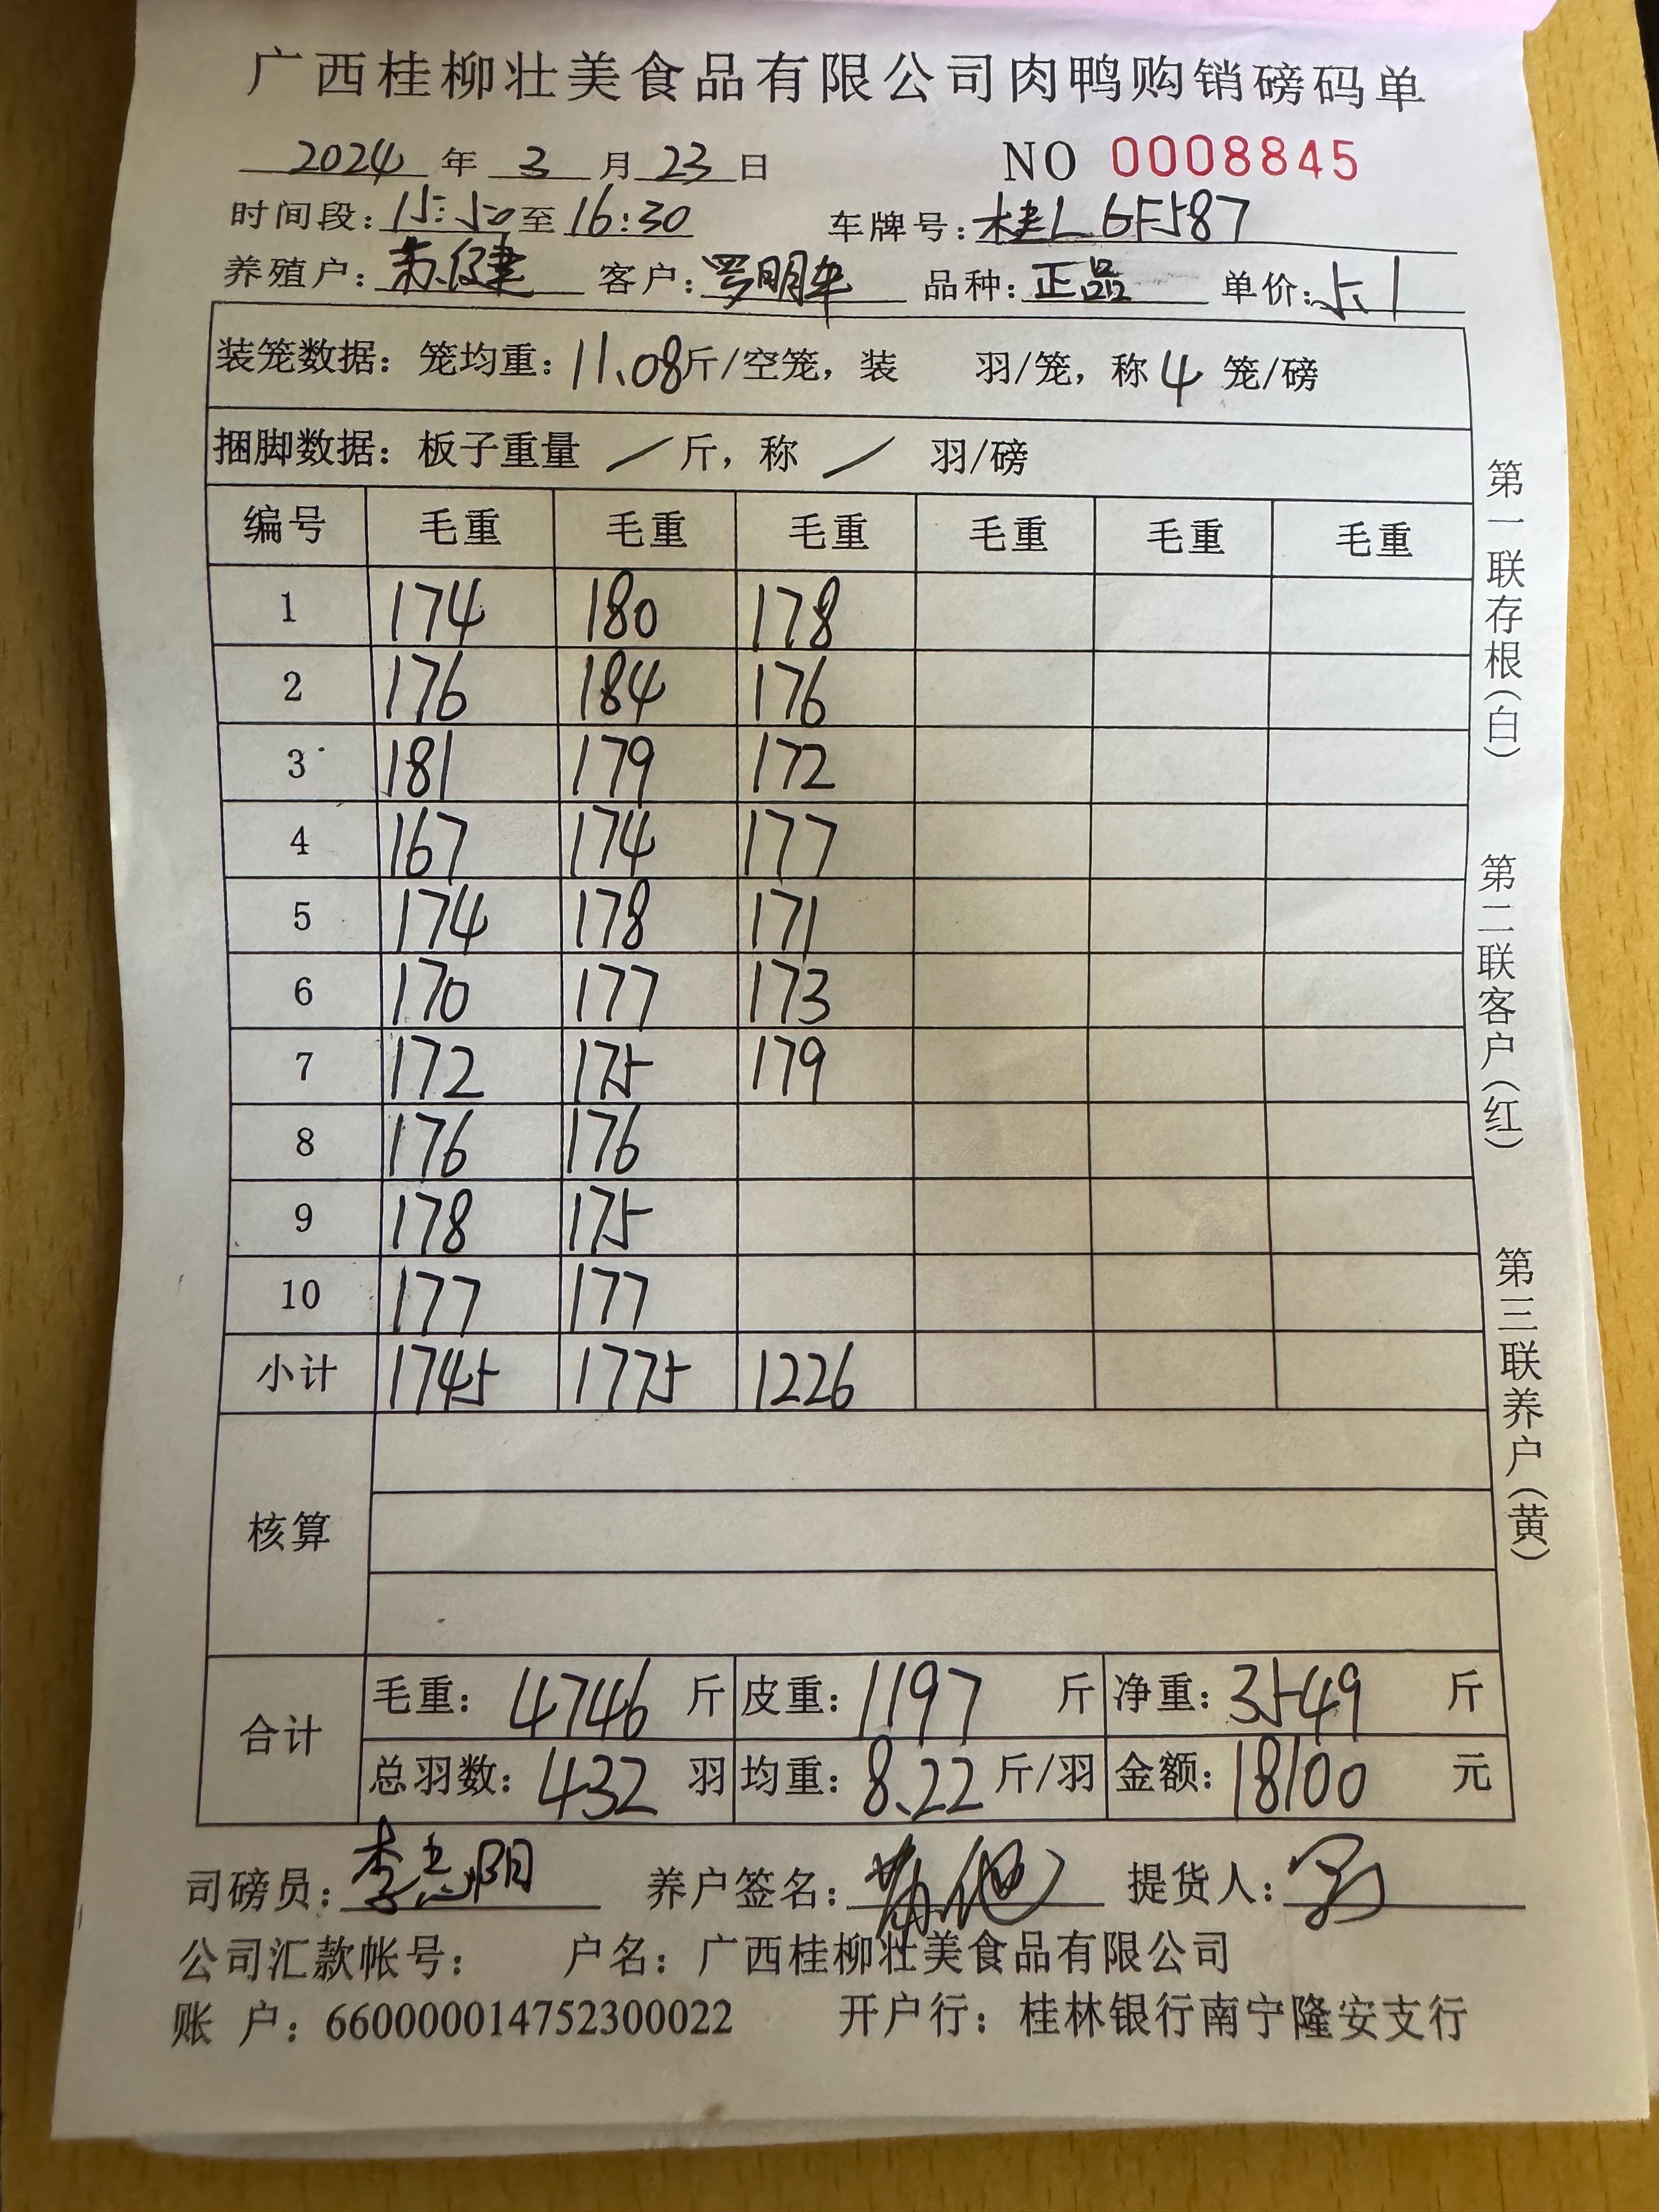 广西桂柳壮美食品有限公司肉鸭购销磅码单
2024 年 3 月 23 日 NO 0008845
时间段：15:50 至 16:30 车牌号：桂L6F587
养殖户：健 客户：罗明 品种：正品 单价：5.1
装笼数据：笼均重：11.08斤/空笼，装 羽/笼，称 4 笼/磅
捆脚数据：板子重量 / 斤，称 / 羽/磅
编号 毛重 毛重 毛重 毛重 毛重 毛重
1 174 180 178
2 176 184 176
3 181 179 172
4 167 174 177
5 174 178 171
6 170 177 173
7 172 175 179
8 176 176
9 178 175
10 177 177
小计 1745 1775 1226
核算
合计 毛重：4746 斤 皮重：1197 斤 净重：3549 斤
总羽数：432 羽 均重：8.22 斤/羽 金额：18100 元
司磅员：李志阳 养户签名： 提货人：
公司汇款帐号： 户名：广西桂柳壮美食品有限公司
账 户：660000014752300022 开户行：桂林银行南宁隆安支行
第一联存根(白)
第二联客户(红)
第三联养户(黄)